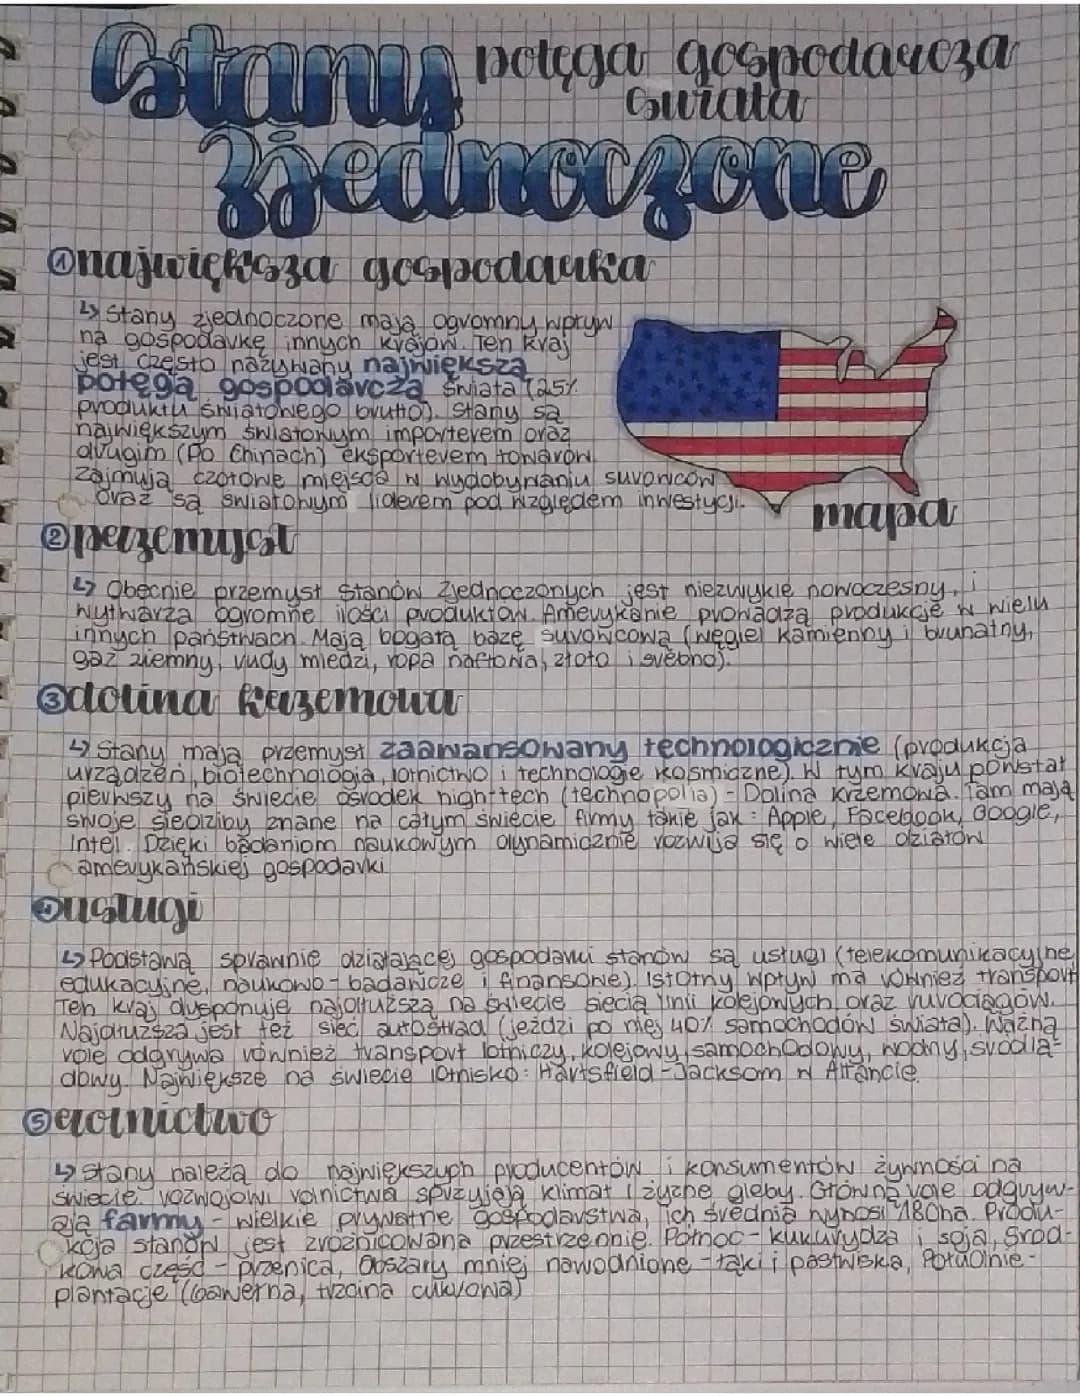 Stany potęga gospodarcza
świata
Zjednoczone
① największa gospodarka
↳ Stany zjednoczone mają ogromny wpływ
na gospodarkę innych krajów. Ten kraj
jest często nazywany największą
potęgą gospodarczą świata (25%
produktu światowego brutto). Stany są
największym światowym importerem oraz
drugim (Po Chinach) eksporterem towarów.
zajmują czołowe miejsca w wydobywaniu surowców
oraz są światowym liderem pod względem inwestycji.
mapa
② przemysł
↳ Obecnie przemysł Stanów Zjednoczonych jest niezwykle nowoczesny, i
wytwarza ogromne ilości produktów. Amerykanie prowadzą produkcję w wielu
innych państwach. Mają bogatą bazę surowcową (węgiel kamienny i brunatny,
gaz ziemny, rudy miedzi, ropa naftowa, złoto i srebro).
③ dolina krzemowa
↳ Stany mają przemysł zaawansowany technologicznie (produkcja
urządzeń, biotechnologia, lotnictwo i technologie kosmiczne). W tym kraju powstał
pierwszy na świecie ośrodek high-tech (technopolia) - Dolina Krzemowa. Tam mają
swoje siedziby znane na całym świecie firmy takie jak: Apple, Facebook, Google,
Intel. Dzięki badaniom naukowym dynamicznie rozwija się o wiele działów
amerykańskiej gospodarki
④ usługi
↳ Podstawą sprawnie działającej gospodarki stanów są usługi (telekomunikacyjne,
edukacyjne, naukowo-badawcze i finansowe). Istotny wpływ ma również transport
Ten kraj dysponuje najdłuższą na świecie siecią linii kolejowych oraz rurociągów.
Najdłuższa jest też sieć autostrad (jeździ po niej 40% samochodów świata). Ważną
rolę odgrywa również transport lotniczy, kolejowy, samochodowy, wodny, śródlą-
dowy. Największe na świecie lotnisko: Hartsfield-Jacksom w Atlancie.
⑤ rolnictwo
↳ Stany należą do największych producentów i konsumentów żywności na
świecie. rozwojowi rolnictwa sprzyjają klimat i żyzne gleby. Główną role odgryw-
ają farmy - wielkie prywatne gospodarstwa, ich średnia wynosi 180ha. Produ-
kcja stanów jest zróżnicowana przestrzennie. Północ - kukurydza i soja, Środ-
kowa część - pszenica, Obszary mniej nawodnione - łąki i pastwiska, Południe -
plantacje (bawełna, trzcina cukrowa)